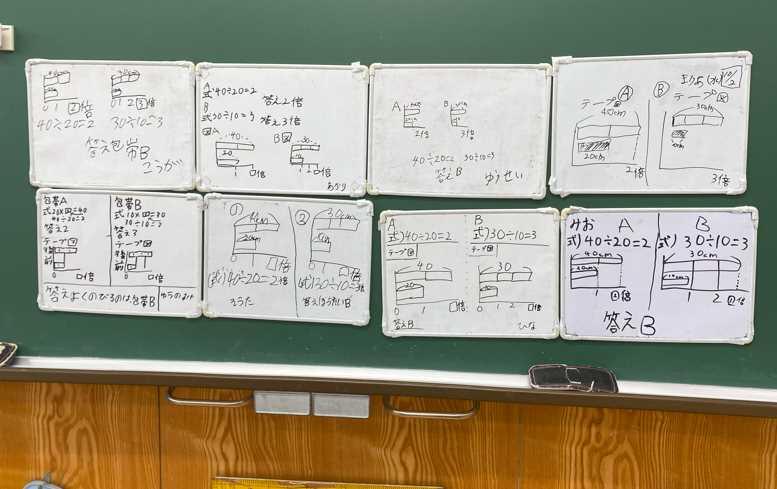 40cm 30cm
0 1 2倍 0 1 2 3倍
40÷20=2 30÷10=3
答え包帯B
こうが
A
式40÷20=2 答え2倍
B
式30÷10=3 答え3倍
図A 40 B図 30
20
0 1 □倍 0 1 2 □倍
あかり
A B
2倍 3倍
40÷20=2 30÷10=3
答えB ゆうせい
10/2
A B
テープ図 テープ図
40cm 30cm
20cm
2倍 3倍
包帯A 包帯B
式20×□=40 式10×□=30
40÷20=2 30÷10=3
答え2 答え3
テープ図 テープ図
0 1 □倍 0 1 □倍
答えよくのびるのは包帯B
① ②
40cm 30cm
20cm
0 1 □倍 0 1 □倍
(式)40÷20=2倍 (式)30÷10=3倍
A B
式)40÷20=2 式)30÷10=3
テープ図 テープ図
40 30
20 10
0 1 □倍 0 1 2 □倍
答えB ひな
みお A B
式)40÷20=2 式)30÷10=3
40cm 30cm
20cm 10cm
1 2倍 1 2 3倍
答えB